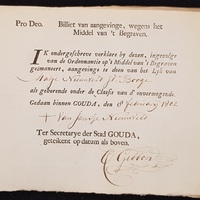 Pro Deo. Billet van aangevinge, wegens het
Middel van 't Begraven.
IK ondergeschreve verklare by dezen, ingevolge
van de Ordonnantie op 't Middel van 't Begraven
geëmaneert, aangevinge te doen van het Lyk van
als gehorende onder de Classis van d' onvermogende.
Gedaan binnen GOUDA, den 8 february 1802
Ter Secretarye der Stad GOUDA,
geteikent op datum als boven.